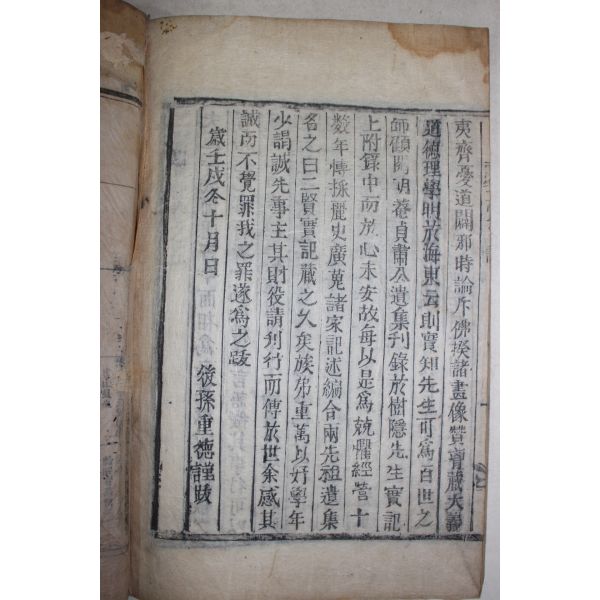 夷齊憂道闢邪時論斥佛揆諸畫像贊寶藏大義
道德理學明於海東云則實知先生可爲百世之
師顧閒朝菴貞肅公遺集刊錄於樹隱先生實記
上附錄中而於心未安故每以是爲兢懼經營十
數年傳採麗史廣蒐諸家記述編合兩先祖遺集
名之曰二賢實記藏之久矣族弟重萬以好學年
少謂誠先事主其財役請刊行而傳於世余感其
誠而不覺罪我之罪遂爲之跋
歲壬戌冬十月日 後孫重德謹跋